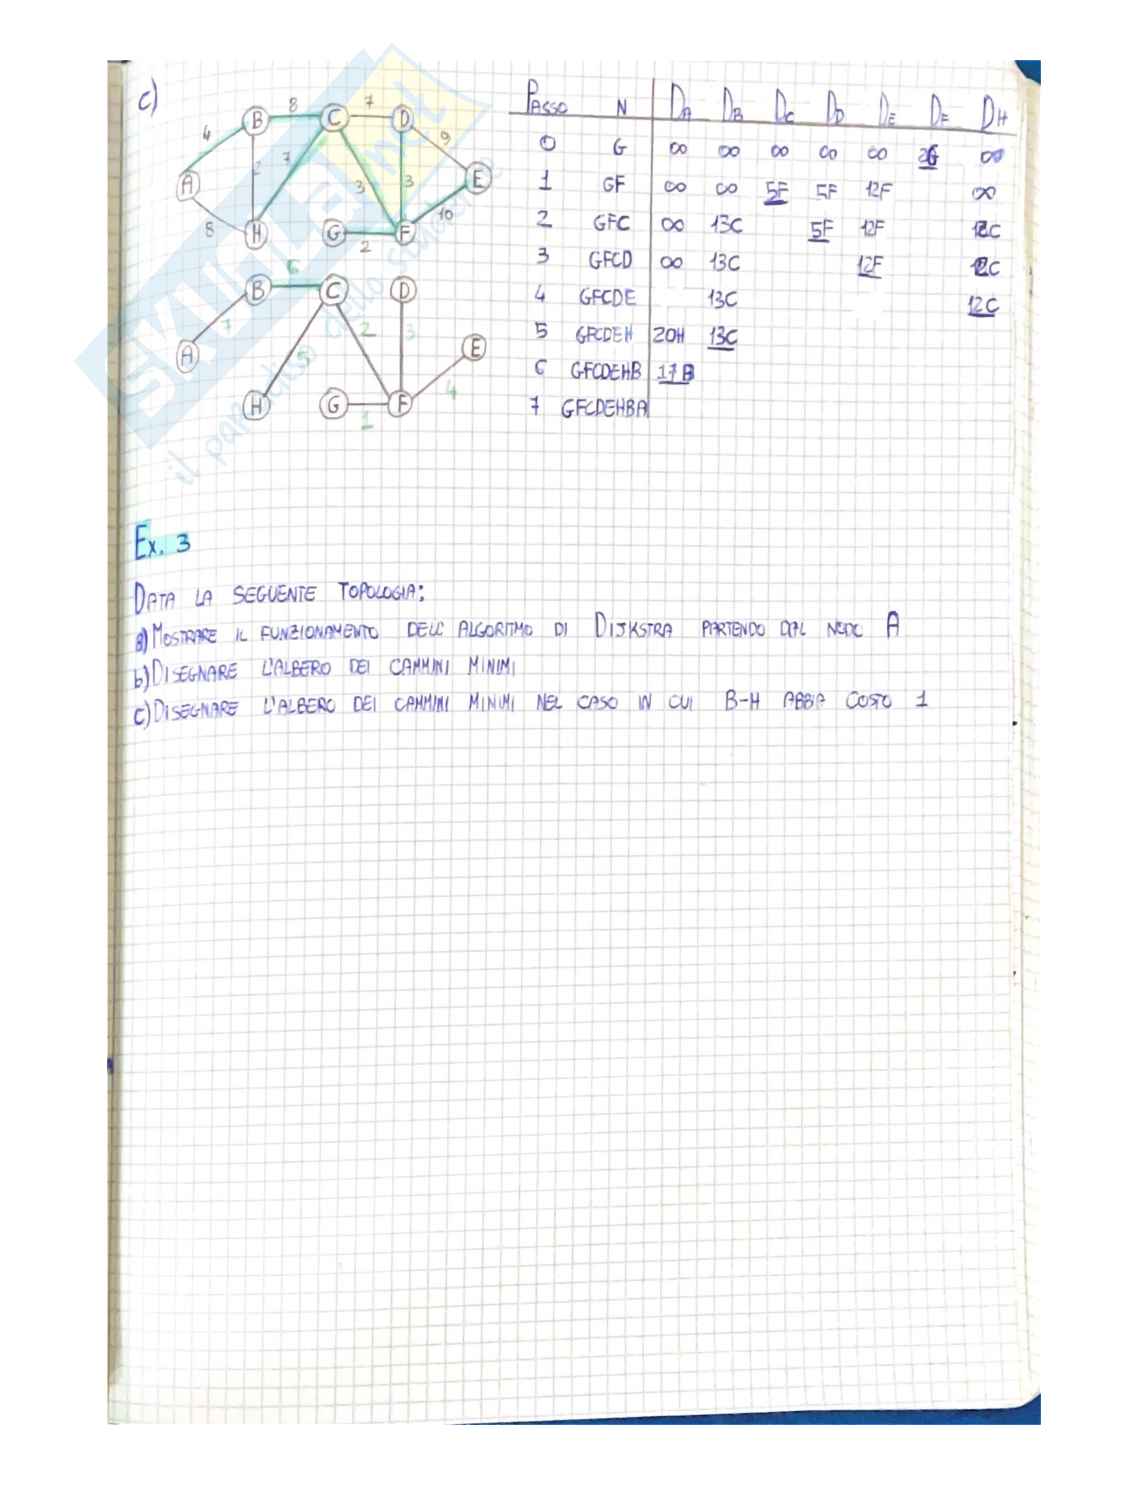 c)
8 7
B C D
4 2 7 3 3 9
A E
8 H G F 10
2
6
B C D
7 2 3
A 5 E
H G F 4
1
PASSO N DA DB DC DD DE DF DH
0 G ∞ ∞ ∞ ∞ ∞ 2G ∞
1 GF ∞ ∞ 5F 5F 12F ∞
2 GFC ∞ 13C 5F 12F 12C
3 GFCD ∞ 13C 12F 12C
4 GFCDE 13C 12C
5 GFCDEH 20H 13C
6 GFCDEHB 17B
7 GFCDEHBA
SKUOLA.net
il paradiso dello studente
Ex. 3
DATA LA SEGUENTE TOPOLOGIA:
a) MOSTRARE IL FUNZIONAMENTO DELL'ALGORITMO DI DIJKSTRA PARTENDO DAL NODO A
b) DISEGNARE L'ALBERO DEI CAMMINI MINIMI
c) DISEGNARE L'ALBERO DEI CAMMINI MINIMI NEL CASO IN CUI B-H ABBIA COSTO 1